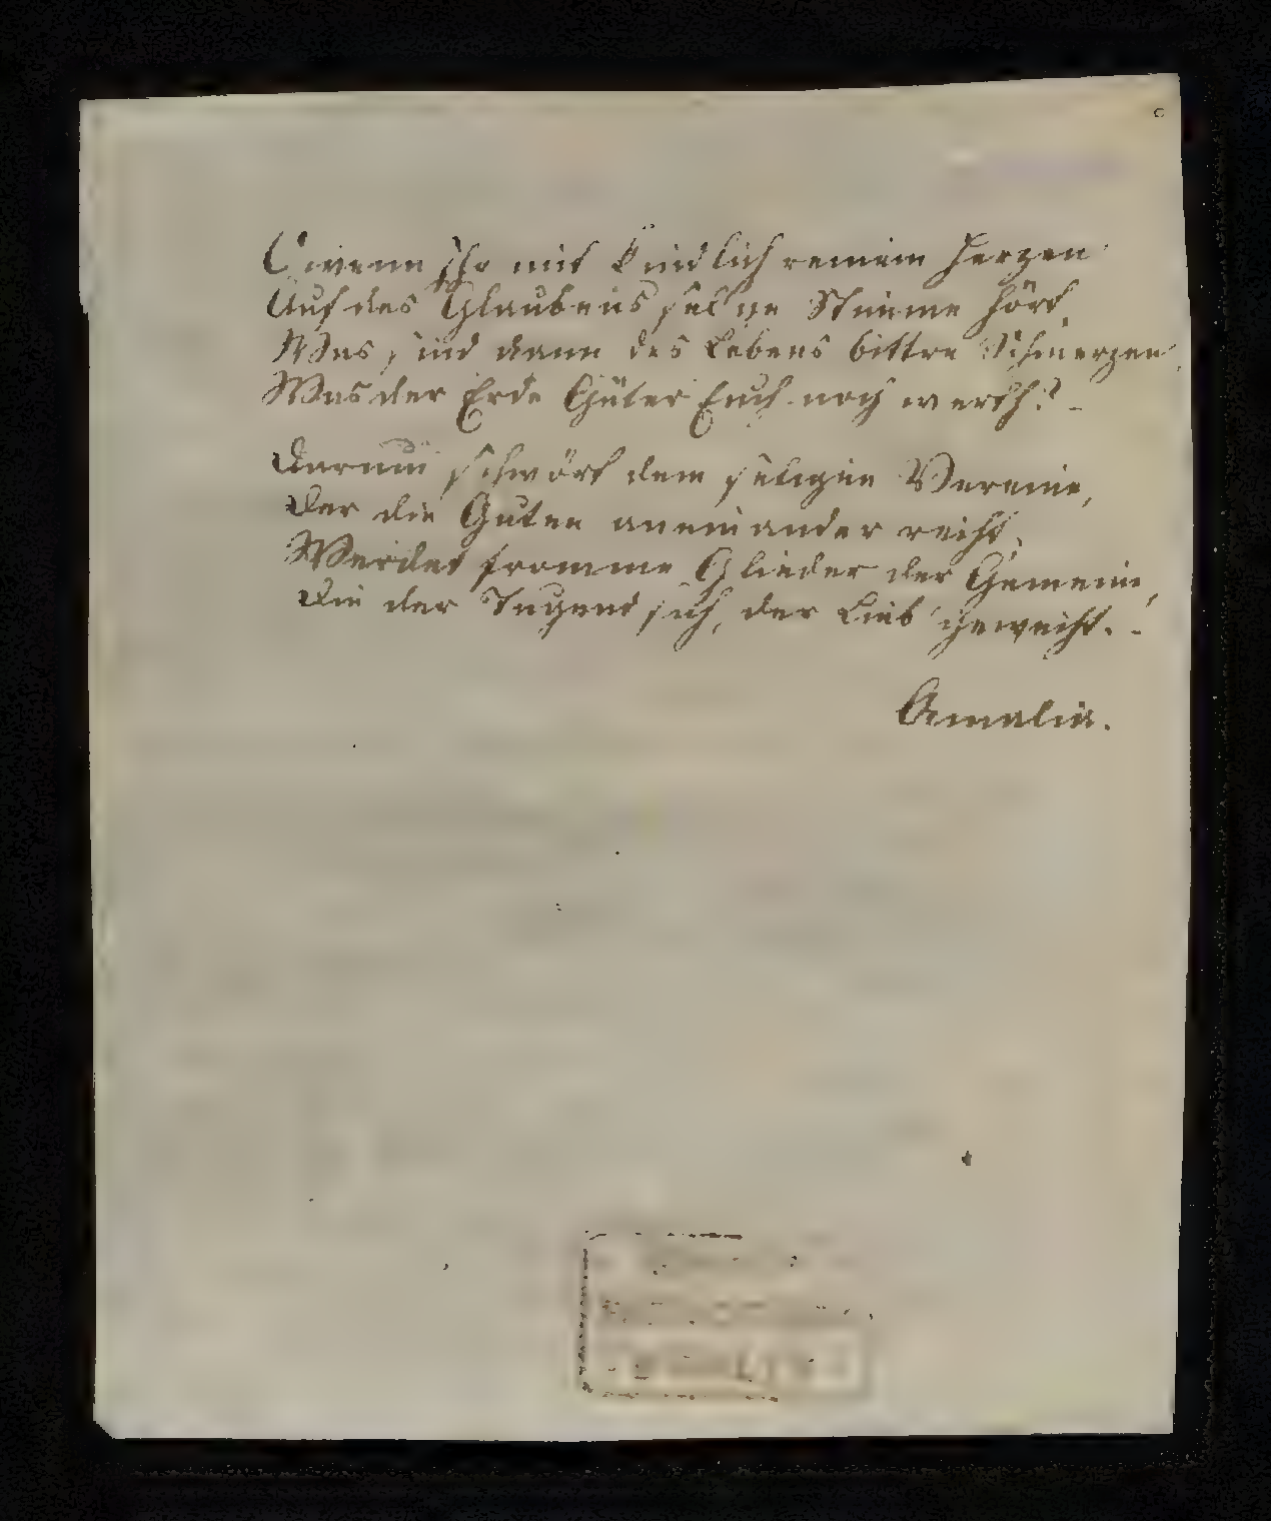 O wenn Ihr mit kindlich reinem Herzen
Auf des Glaubens sel'ge Stimme hört,
Was sind dann des Lebens bittre Schmerzen,
Was der Erde Güter Euch noch werth? -
Darum schwört dem seligen Vereine,
Der die Guten aneinander reiht,
Werdet fromme Glieder der Gemeine,
Die der Tugend sich, der Lieb' geweiht. -
Amalie.